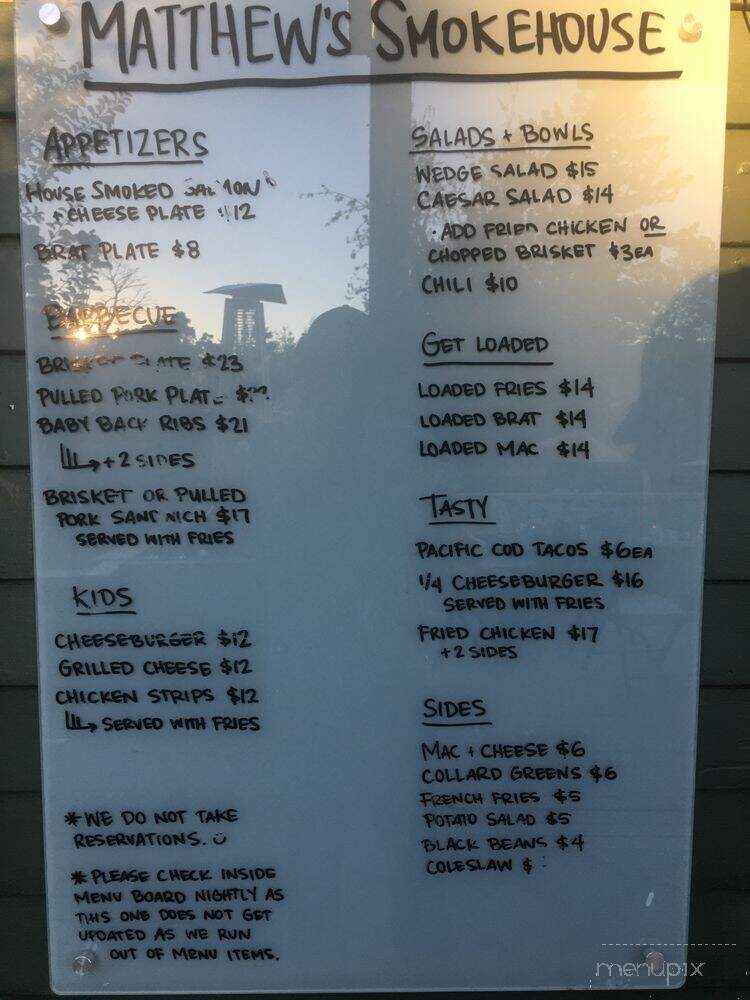 MATTHEW'S SMOKEHOUSE
APPETIZERS
HOUSE SMOKED SALMON
+ CHEESE PLATE $12
BRAT PLATE $8
BARBECUE
BRISKET PLATE $23
PULLED PORK PLATE
BABY BACK RIBS $21
+ 2 SIDES
BRISKET OR PULLED
PORK SANDWICH $17
SERVED WITH FRIES
KIDS
CHEESEBURGER $12
GRILLED CHEESE $12
CHICKEN STRIPS $12
SERVED WITH FRIES
* WE DO NOT TAKE
RESERVATIONS. ☺
* PLEASE CHECK INSIDE
MENU BOARD NIGHTLY AS
THIS ONE DOES NOT GET
UPDATED AS WE RUN
OUT OF MENU ITEMS.
SALADS + BOWLS
WEDGE SALAD $15
CAESAR SALAD $14
· ADD FRIED CHICKEN OR
CHOPPED BRISKET $3EA
CHILI $10
GET LOADED
LOADED FRIES $14
LOADED BRAT $14
LOADED MAC $14
TASTY
PACIFIC COD TACOS $6EA
1/4 CHEESEBURGER $16
SERVED WITH FRIES
FRIED CHICKEN $17
+ 2 SIDES
SIDES
MAC + CHEESE $6
COLLARD GREENS $6
FRENCH FRIES $5
POTATO SALAD $5
BLACK BEANS $4
COLESLAW $
menupix